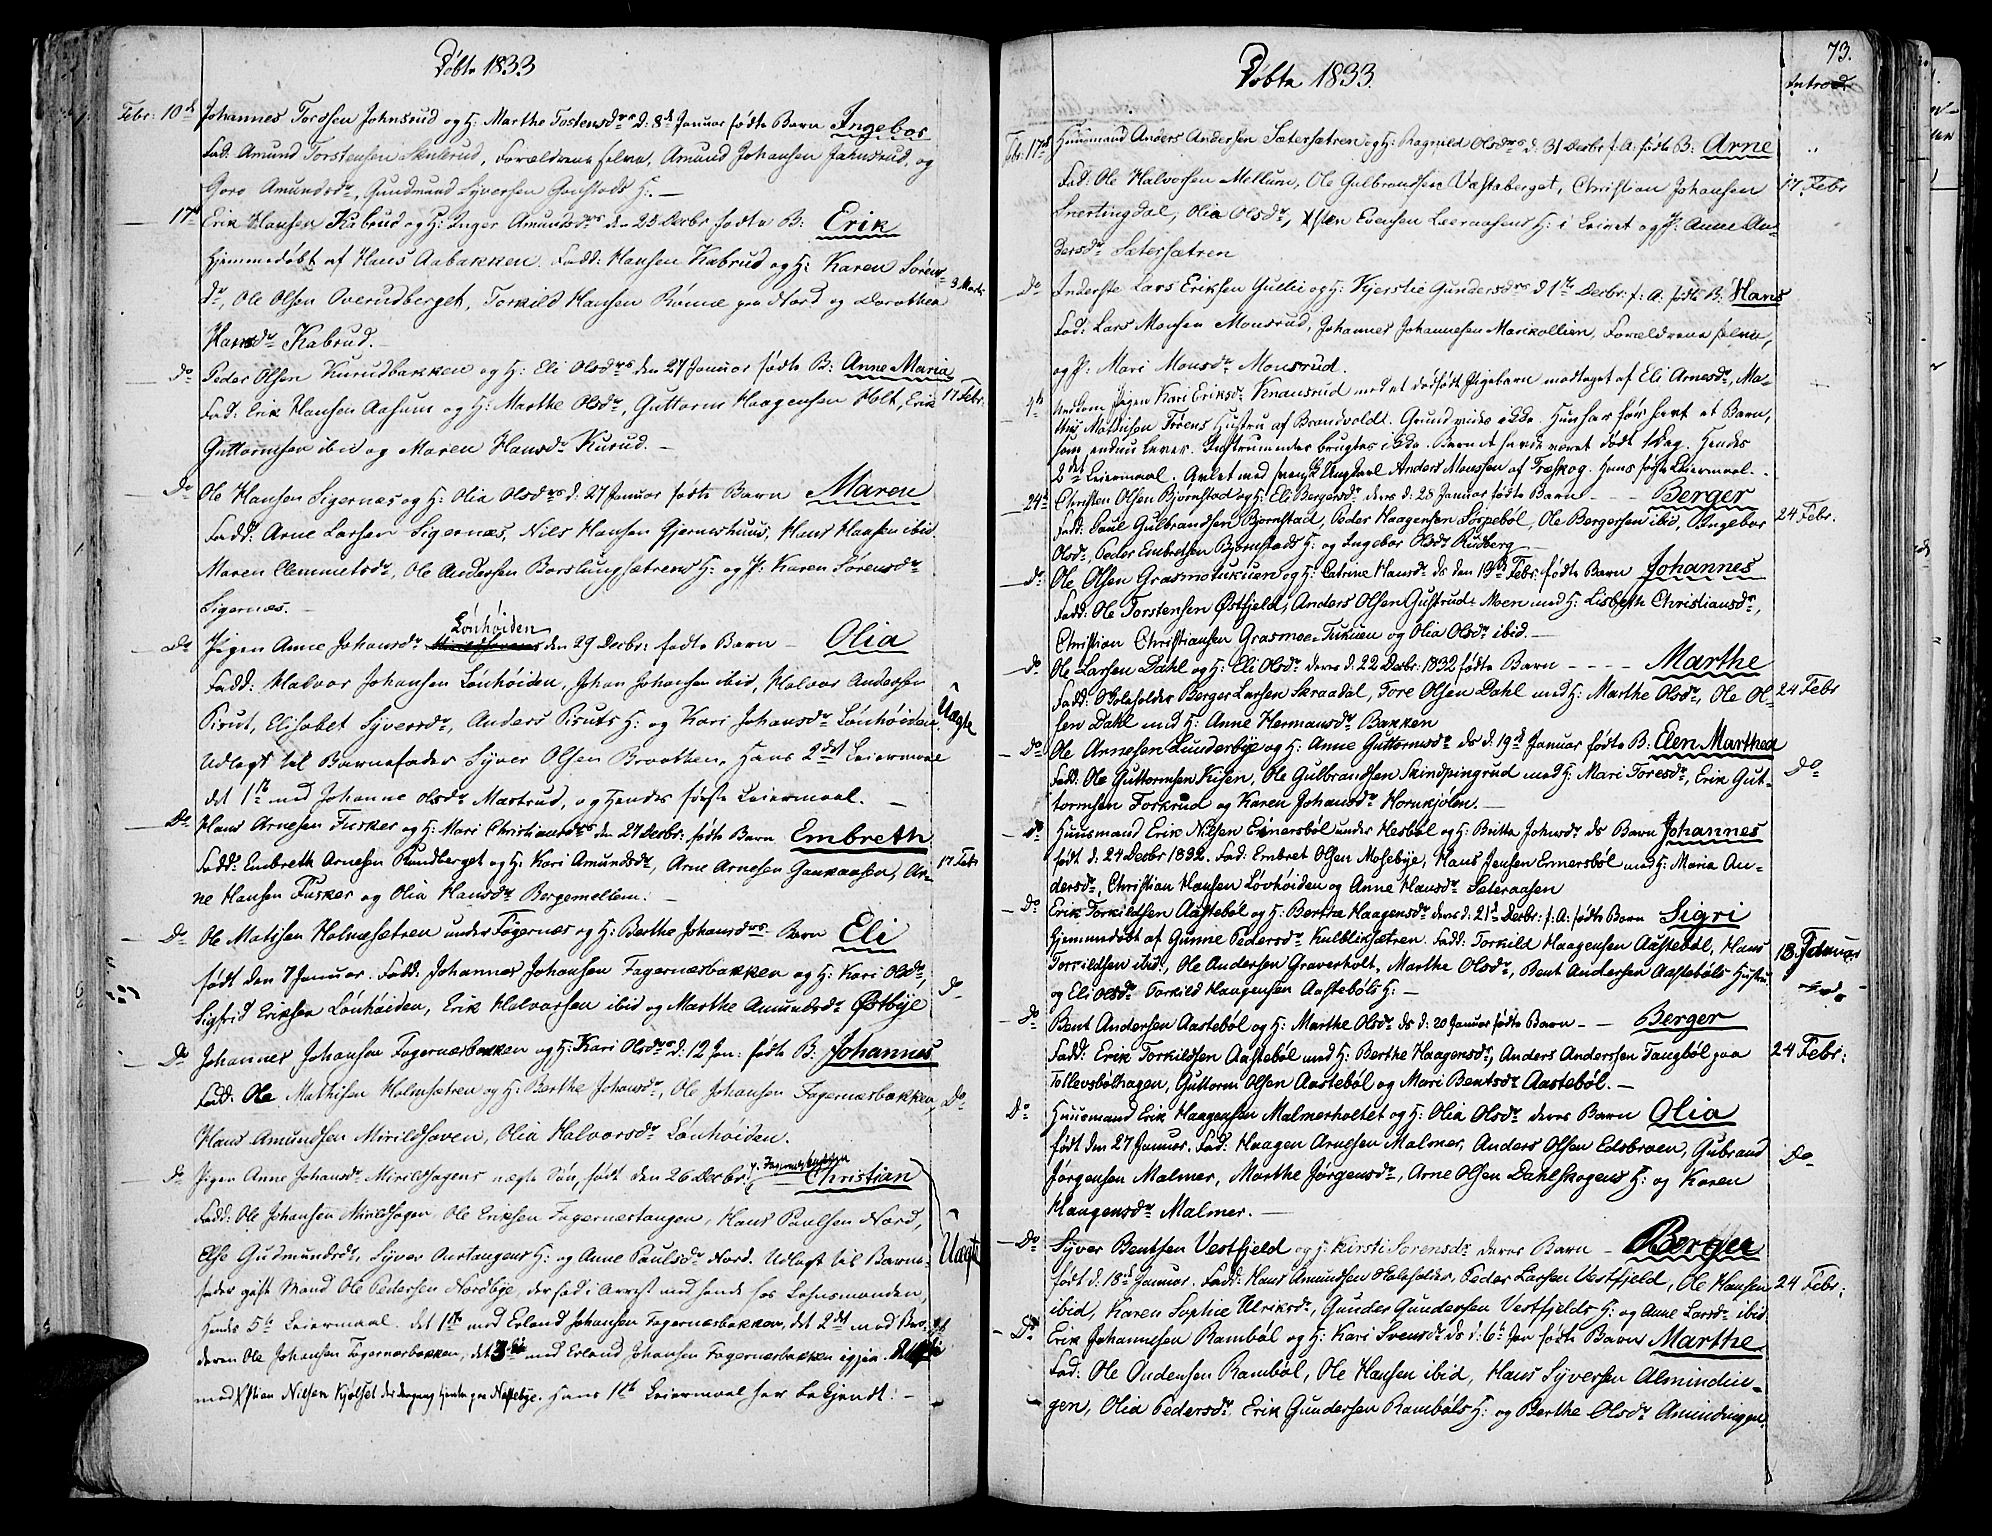 Döbte 1833
Febr: 10d Johannes Torssen Johnsrud og H: Marthe Tostensdrs d: 8d Januar födte Barn Ingebor
Fad: Amund Torstensen Skulerud, Forældrene selve, Amund Johansen Johnsrud, og
Goro Amundsdr, Gundmund Syversen Gonstads H: —
— 17d Erik Hansen Kabrud og H: Inger Amundsdrs den 23 Decbr födte B: Erik
Hjemmedöbt af Hans Aabakken. Fadd: Hansen Kabrud og H: Karen Sören-
dr, Ole Olsen Overudberget, Torkild Hansen Römne paa Nord og Dorothea 3 Marts
Hansdr Kabrud. —
— Do Peder Olsen Kurudbakken og H: Eli Olsdrs den 27 Januar födte B: Anne Maria
Fad: Erik Hansen Aasum og H: Marthe Olsdr, Guttorm Haagensen Holt, Erik 17 Febr:
Guttormsen ibid og Maren Hansdr Kurud. —
— Do Ole Hansen Sigernæs og H: Olia Olsdrs d: 27 Januar födte Barn Maren
Fadd: Arne Larsen Sigernæs, Nils Hansen Gjerneshuus, Hans Hansen ibid
Maren Clemmetsdr, Ole Andersen Borslungsætrens H: og P: Karen Sörensdr
Sigernæs. —
Lönhöiden
— Do Pigen Anne Johansdr den 29 Decbr: födte Barn — Olia
Fadd: Halvor Johansen Lönhöiden, Johan Johansen ibid, Halvor Andersen
Pirut, Elisabet Syversdr, Anders Piruts H: og Kari Johansdr Lönhöiden. Uægte
Udlagt til Barnefader Syver Olsen Braathen, Hans 2det Leiermaal
det 1te med Johanne Olsdr Mastrud, og Hendes förste Leiermaal. —
— Do Hans Arnesen Fusker og H: Mari Christiansdrs den 27 Decbr: födte Barn Embreth
Fadd: Embreth Arnesen Rundberget og H: Kari Amundsdr, Arne Arnesen Gaukaasen, Ar- 17 Febr
ne Hansen Fusker og Olia Hansdr Bergemellem. —
— Do Ole Matisen Holmsætren under Fagernæs og H: Berthe Johansdrs Barn Eli
född den 7 Januar. Fadd: Johannes Johansen Fagernæsbakken og H: Kari Olsdr, Do
Sigfrid Eriksen Lönhöiden, Erik Halvorsen ibid og Marthe Amundsdr Östbye
— Do Johannes Johansen Fagernæsbakken og H: Kari Olsdrs d: 12 Jan: födte B: Johannes
Fadd: Ole Mathisen Holmsætren og H: Berthe Johansdr, Ole Johansen Fagernæsbakken, Do
Hans Amundsen Mirildhaven, Olia Halvorsdr Lönhöiden.
— Do Pigen Anne Johansdr Mirildhagens uægte Sön, född den 26 Decbr: Christian
Fadd: Ole Johansen Mirildhagen Ole Eriksen Fagernestangen, Hans Paulsen Nord,
Else Gudmundsdr, Syver Aurtangens H: og Anne Paulsdr Nord. Udlagt til Barne- Uægte
fader gift Mand Ole Pedersen Nordbye, der sad i Arrest med hende hos Lehnsmanden,
Hendes 5te Leiermaal. det 1te med Erland Johansen Fagernæsbakken, det 2det med Bro-
deren Ole Johansen Fagernæsbakken, det 3die med Erland Johansen Fagernæsbakken igjen.
med Xstian Nilsen Kjölset der dengang tjente paa Nestebye. Hans 1te Leiermaal har bekjendt: —
73.
Döbte 1833.
Introd.
Febr: 17d Huusmand Anders Andersen Sætersætren og H: Ragnild Olsdrs d: 31 Decbr f. A. födte B: Arne
Fad: Ole Halvorsen Mellum, Ole Gulbrandsen Væstaberget, Christian Johansen 17 Febr
Snertingdal, Olia Olsdr, Xsten Evensen Leeraasens H: i Leiret og P: Anne An-
dersdr Sætersætren
— Do Inderste Lars Eriksen Gullie og H: Kjerstie Gundersdrs d 1te Decbr: f: A. födte B: Hans
Fad: Lars Monsen Monsrud, Johannes Johannesen Marikollien, Forældrene selve,
og P: Mari Monsdr Monsrud.
Pigen Kari Eriksdr Knausrud med et dödfödt Pigebarn modtaget af Eli Arnesdr, Ma-
this Mathisen Törens Hustru af Brandvoldt. Grund vides ikke. Hun har för havt et Barn,
som endnu lever. Instrumenter brugtes ikke. Barnet havde været dödt 1 Dag. Hendes
2det Leiermaal. Avlet med Ungkarl Anders Monssen af Træskog. Hans förste Leiermaal.
— 24d Christen Olsen Björnstad og H: Eli Bergersdr deres d: 28 Januar födte Barn — — Berger
Fadd: Paul Gulbrandsen Björnstad, Peder Haagensen Sorpeböl, Ole Bergersen ibid, Ingebor 24 Febr.
Olsdr, Peder Embretsen Björnstads H: og Ingebor Olsdr Rudberg —
— Do Ole Olsen Grasmotukuen og H: Catrine Hansdr ds den 13d Febr: födte Barn Johannes
Fadd: Ole Torstensen Östfjeld, Anders Olsen Gustrud-Moen med H: Lisbeth Christiansdr,
Christian Christiansen Grasmoe-Tukuen og Olia Olsdr ibid. —
— Do Ole Larsen Dahl og H: Eli Olsdr deres d. 22 Decbr: 1832 födte Barn — — — — Marthe
Fadd: Boleholder Berger Larsen Skraadal, Tore Olsen Dahl med H: Marthe Olsdr, Ole Ol- 24 Febr
sen Dahl med H: Anne Hermansdr Bakken
— Do Ole Arnesen Lunderbye og H: Anne Guttormsdr ds d: 19d Januar födte B: Elen Marthea
Fadd: Ole Guttormsen Kisen, Ole Gulbrandsen Skindpingrud med H: Mari Toresdr, Erik Gut- Do
tormsen Forkrud og Karen Johansdr Hornkjölen. —
— Do Huusmand Erik Nilsen Einersböl under Hesböl og H: Britta Johnsdr ds Barn Johannes
född d: 24 Decbr 1832. Fad: Embret Olsen Mosebye, Hans Jensen Ermersböl med H: Maria An-
dersdr, Christian Hansen Lövhöiden og Anne Hansdr Sæteraasen
— Do Erik Torkildsen Aasteböl og H: Bertha Haagensdr deres d: 21d Decbr: f. A: födte Barn Sigri
Hjemmedöbt af Gunne Pedersdr Kulbliksætren. Fadd: Torkild Haagensen Aasteböl, Hans 18. Februar
Torkildsen ibid, Ole Andersen Graverholt, Marthe Olsdr, Bent Andersen Aasteböls Hustru
og Eli Olsdr Torkild Haagensen Aasteböls H: —
— Do Bent Andersen Aasteböl og H: Marthe Olsdr ds d: 20 Januar födte Barn — — Berger
Fadd: Erik Torkildsen Aasteböl med H: Berthe Haagensdr, Anders Andersen Taugböl paa 24 Febr:
Tollevsbölhagen, Guttorm Olsen Aasteböl og Mari Bentsdr Aasteböl. —
Do Huusmand Erik Haagensen Malmerholtet og H: Olia Olsdr deres Barn Olia
född den 27 Januar. Fad: Haagen Arnesen Malmer, Anders Olsen Edsbraen, Gubrand Do
Jörgensen Malmer, Marthe Jörgensdr, Arne Olsen Dahlskogens H: og Karen
Haagensdr Malmer. —
— Do Syver Bentsen Vestfjeld og H: Kirsti Sorensdr deres Barn — Berger
född d: 18d Januar. Fadd: Hans Amundsen Holeholder, Peder Larsen Vestfjeld, Ole Hansen 24 Febr:
ibid, Karen Sophie Ulriksdr, Gunder Gundersen Vestfjelds H: og Anne Larsdr ibid.
— Do Erik Johannesen Ramböl og H: Kari Svensdr ds d: 6te Jan födte Barn Marthe
Fad: Ole Andersen Ramböl, Ole Hansen ibid, Hans Syversen Almindin-
gen, Olia Pedersdr Erik Gundersen Ramböls H: og Berthe Olsdr Amindingen.